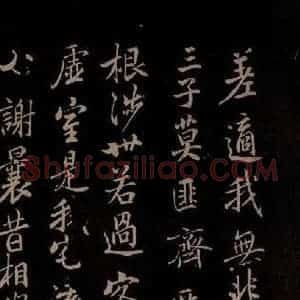 差適我無非
三子莫匪齊所
根涉世若過客
虛室是我宅遠
必謝曩昔相與
Shufaziliao.com